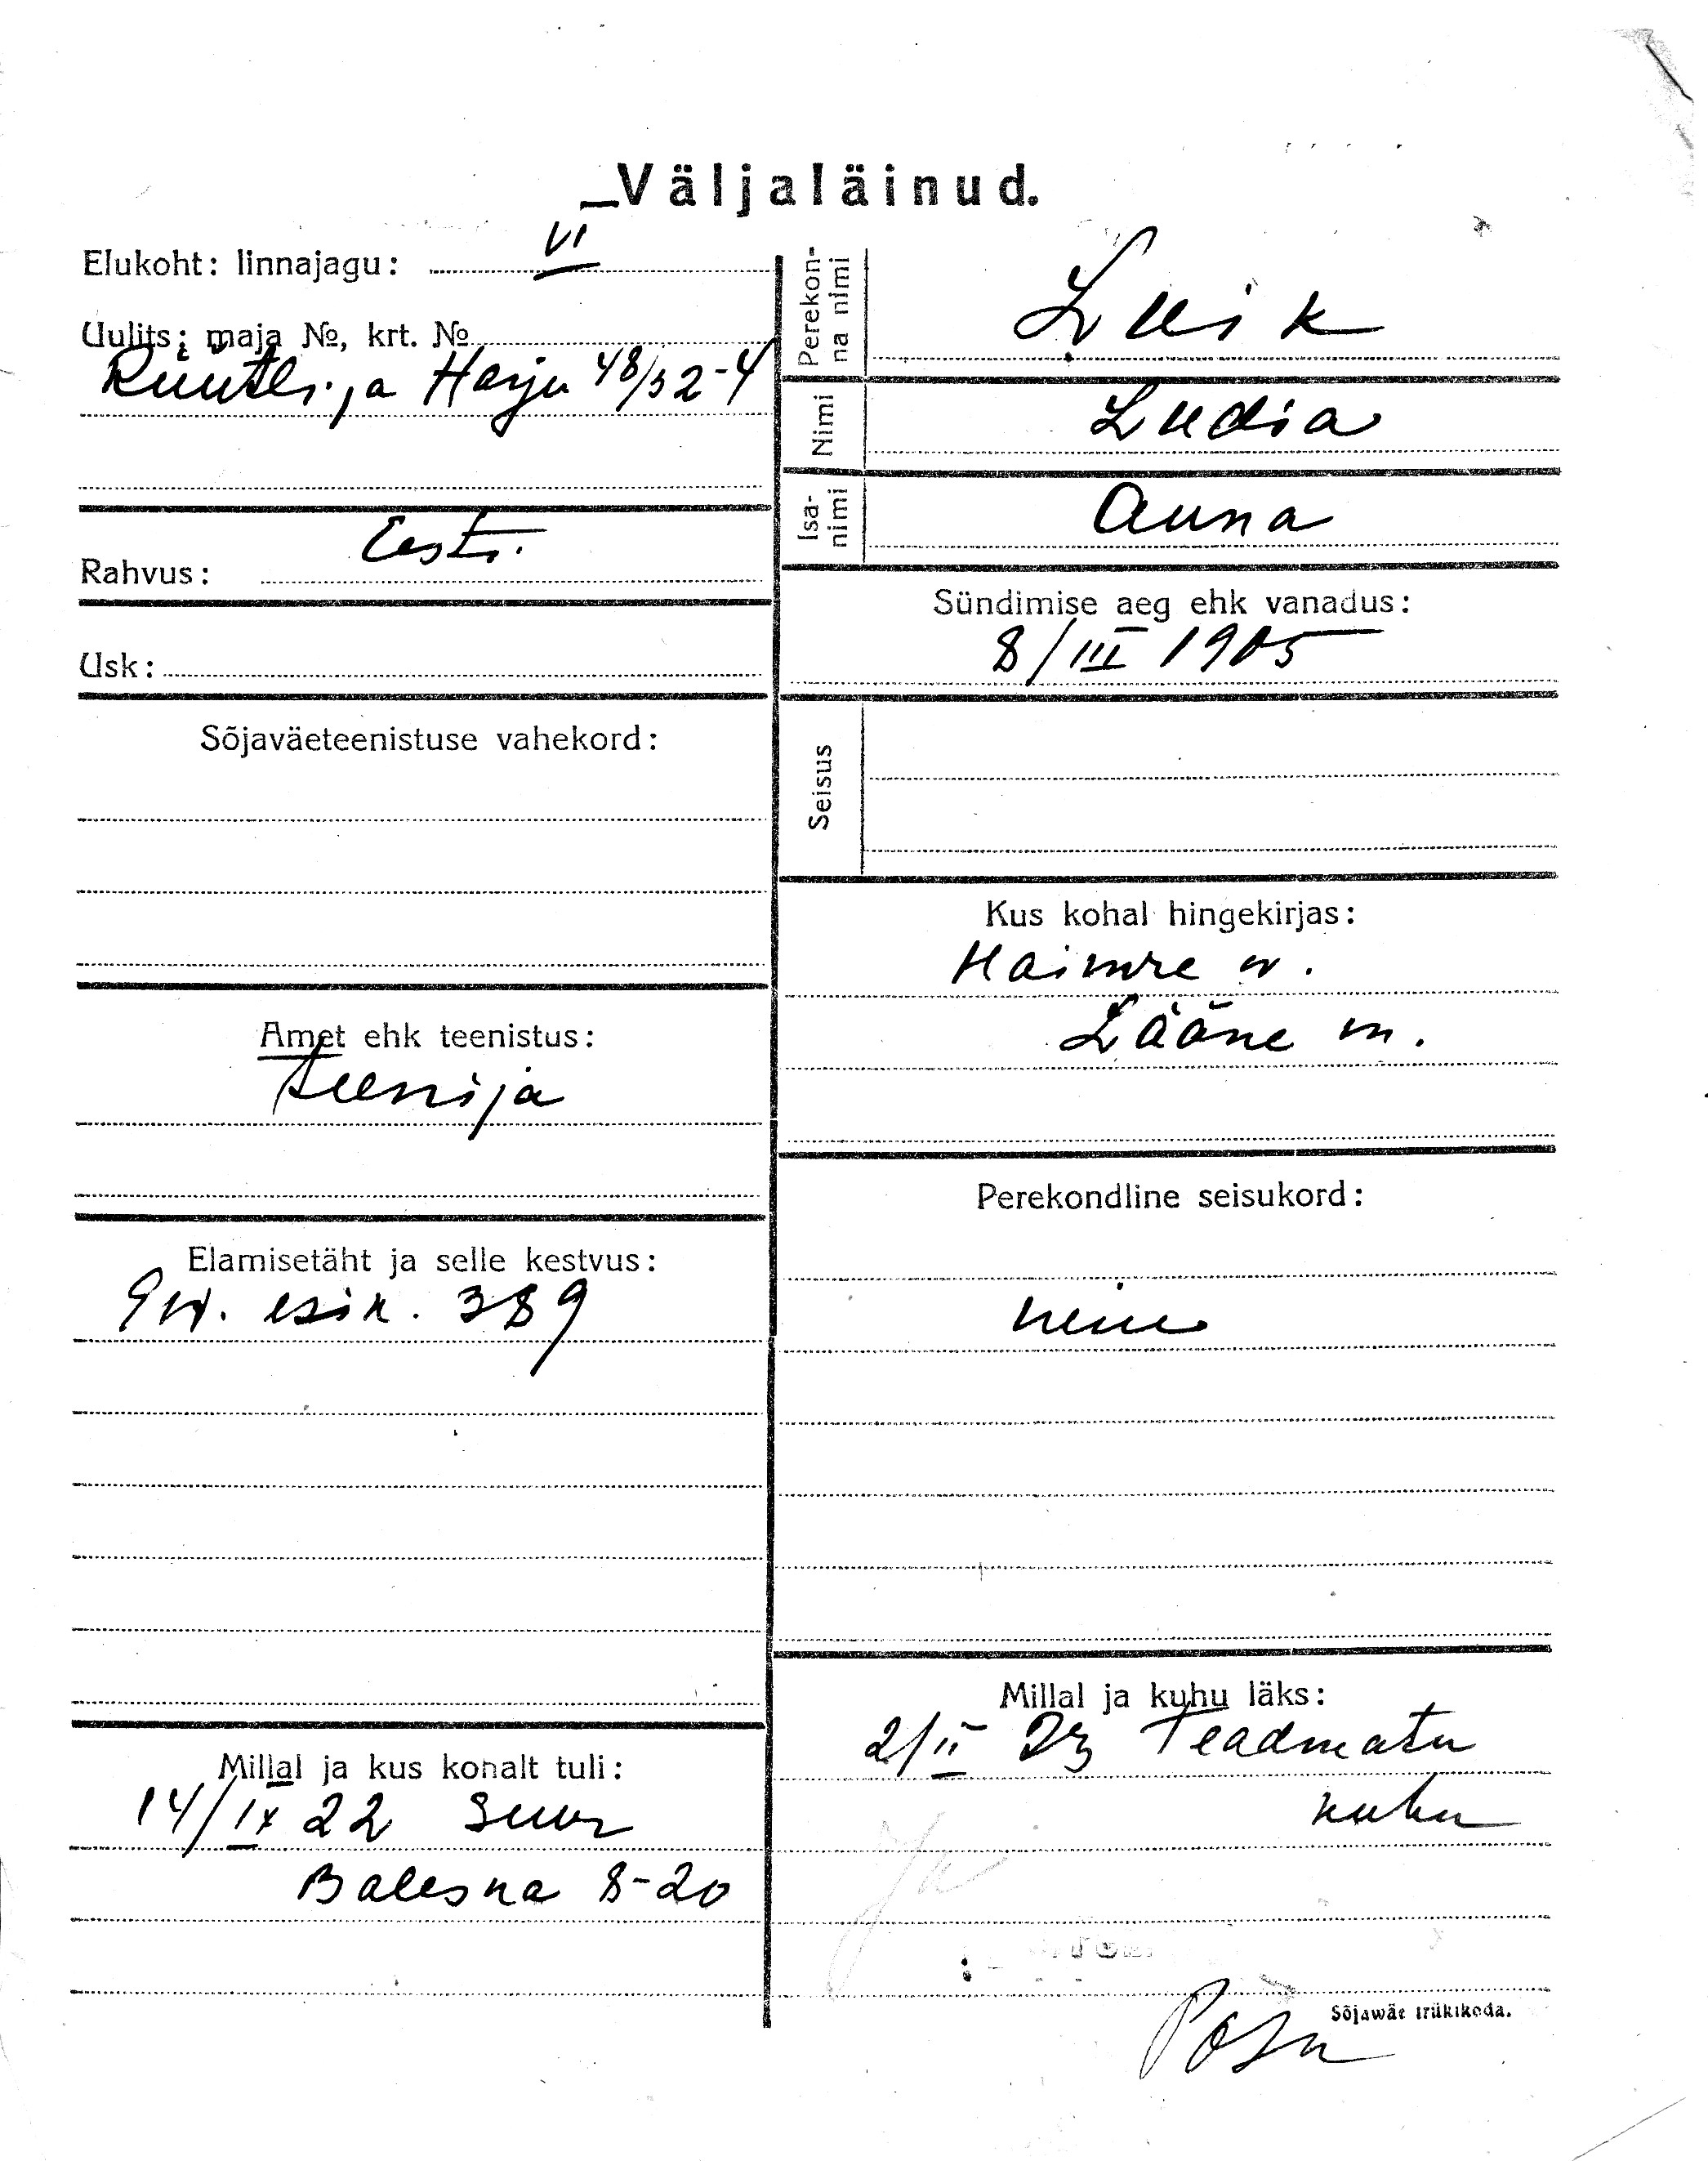 Väljaläinud.
Elukoht: linnajagu: VI
Uulits; maja №, krt. №
Rüütli ja Harju 48/32-4
Rahvus: Eesti.
Usk:
Sõjaväeteenistuse vahekord:
Amet ehk teenistus:
teenija
Elamisetäht ja selle kestvus:
esik. 389
Millal ja kus kohalt tuli:
14/IX 22 Suur
8-20
Perekonna nimi Luik
Nimi Ludia
Isanimi Anna
Sündimise aeg ehk vanadus:
8/III 1905
Seisus
Kus kohal hingekirjas:
Haimre v.
Lääne m.
Perekondline seisukord:
Millal ja kuhu läks:
2/II 23 Teadmata
kuhu
Ja
Sõjawäe trükikoda.